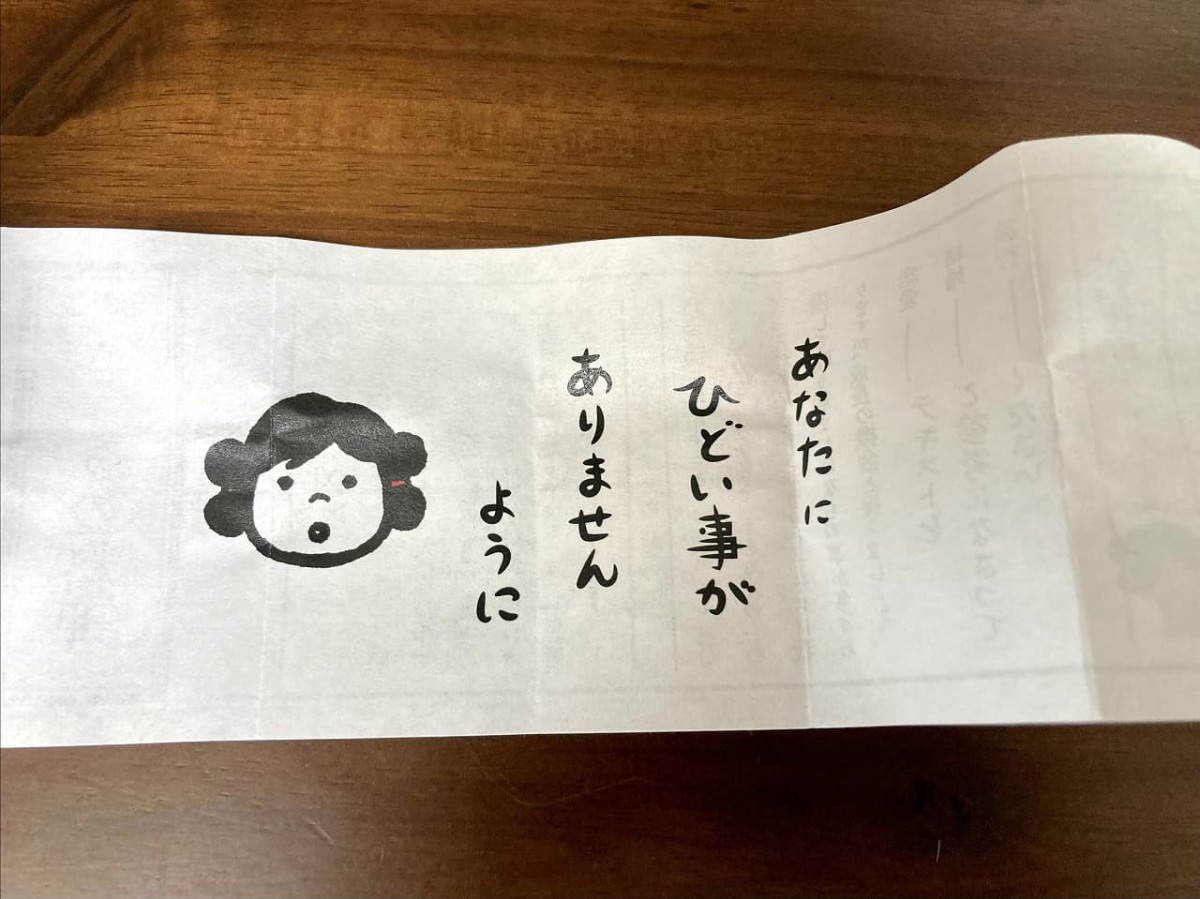 あなたに
ひどい事が
ありません
ように